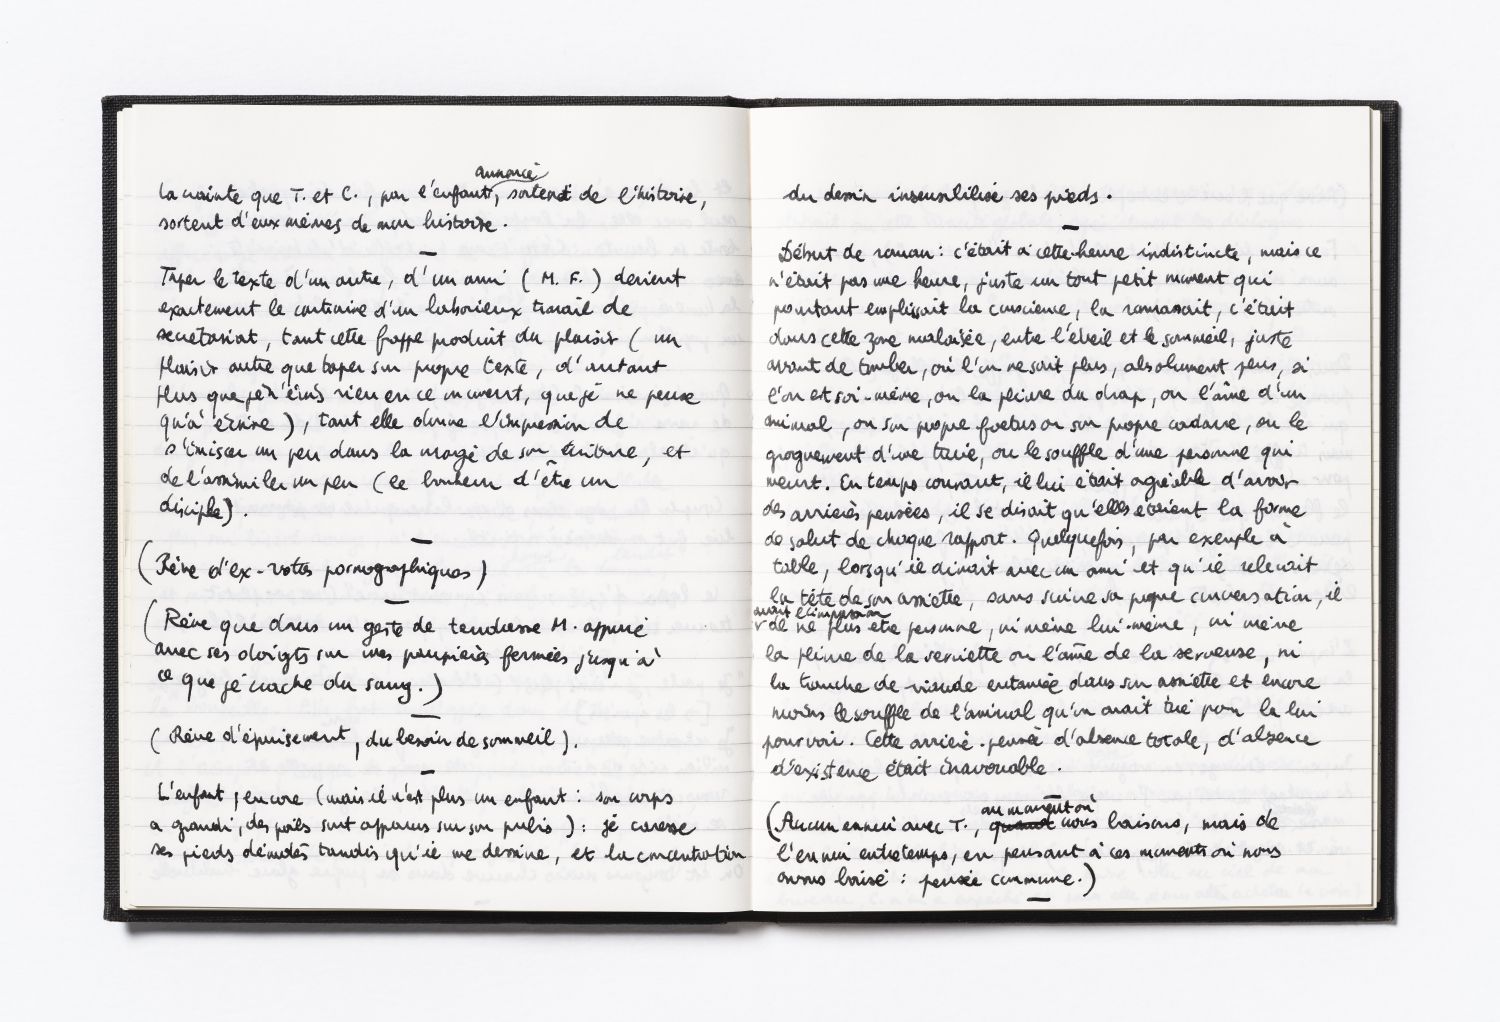 la crainte que T. et C., par l'enfant annoncé, sortent de l'histoire,
sortent d'eux-mêmes de mon histoire.
Taper le texte d'un autre, d'un ami (M. F.) devient
exactement le contraire d'un laborieux travail de
secrétariat, tant cette frappe produit du plaisir (un
plaisir autre que taper son propre texte, d'autant
plus que je n'écris rien en ce moment, que je ne pense
qu'à écrire), tant elle donne l'impression de
s'immiscer un peu dans la marge de son écriture, et
de l'assimiler un peu (le bonheur d'être un
disciple).
(Rêve d'ex-votos pornographiques)
(Rêve que dans un geste de tendresse M. appuie
avec ses doigts sur mes paupières fermées jusqu'à
ce que je crache du sang.)
(Rêve d'épuisement, du besoin de sommeil).
L'enfant, encore (mais il n'est plus un enfant : son corps
a grandi, des poils sont apparus sur son pubis) : je caresse
ses pieds dénudés tandis qu'il me dessine, et la concentration
du dessin insensibilise ses pieds.
Début de roman : c'était à cette heure indistincte, mais ce
n'était pas une heure, juste un tout petit moment qui
pourtant emplissait la conscience, la ramassait, c'était
dans cette zone malaisée, entre l'éveil et le sommeil, juste
avant de tomber, où l'on ne sait plus, absolument plus, si
l'on est soi-même, ou la pliure du drap, ou l'âme d'un
animal, ou son propre foetus ou son propre cadavre, ou le
grognement d'une truie, ou le souffle d'une personne qui
meurt. En temps courant, il lui était agréable d'avoir
des arrières pensées, il se disait qu'elles étaient la forme
de salut de chaque rapport. Quelquefois, par exemple à
table, lorsqu'il dînait avec un ami et qu'il relevait
la tête de son assiette, sans suivre sa propre conversation, il
avait l'impression
de ne plus être personne, ni même lui-même, ni même
la pliure de la serviette ou l'âme de la serveuse, ni
la tranche de viande entamée dans son assiette et encore
moins le souffle de l'animal qu'on avait tué pour la lui
pourvoir. Cette arrière-pensée d'absence totale, d'absence
d'existence était inavouable.
au moment où
(Aucun ennui avec T., quand nous baisons, mais de
l'ennui entretemps, en pensant à ces moments où nous
avons baisé : pensée commune.)